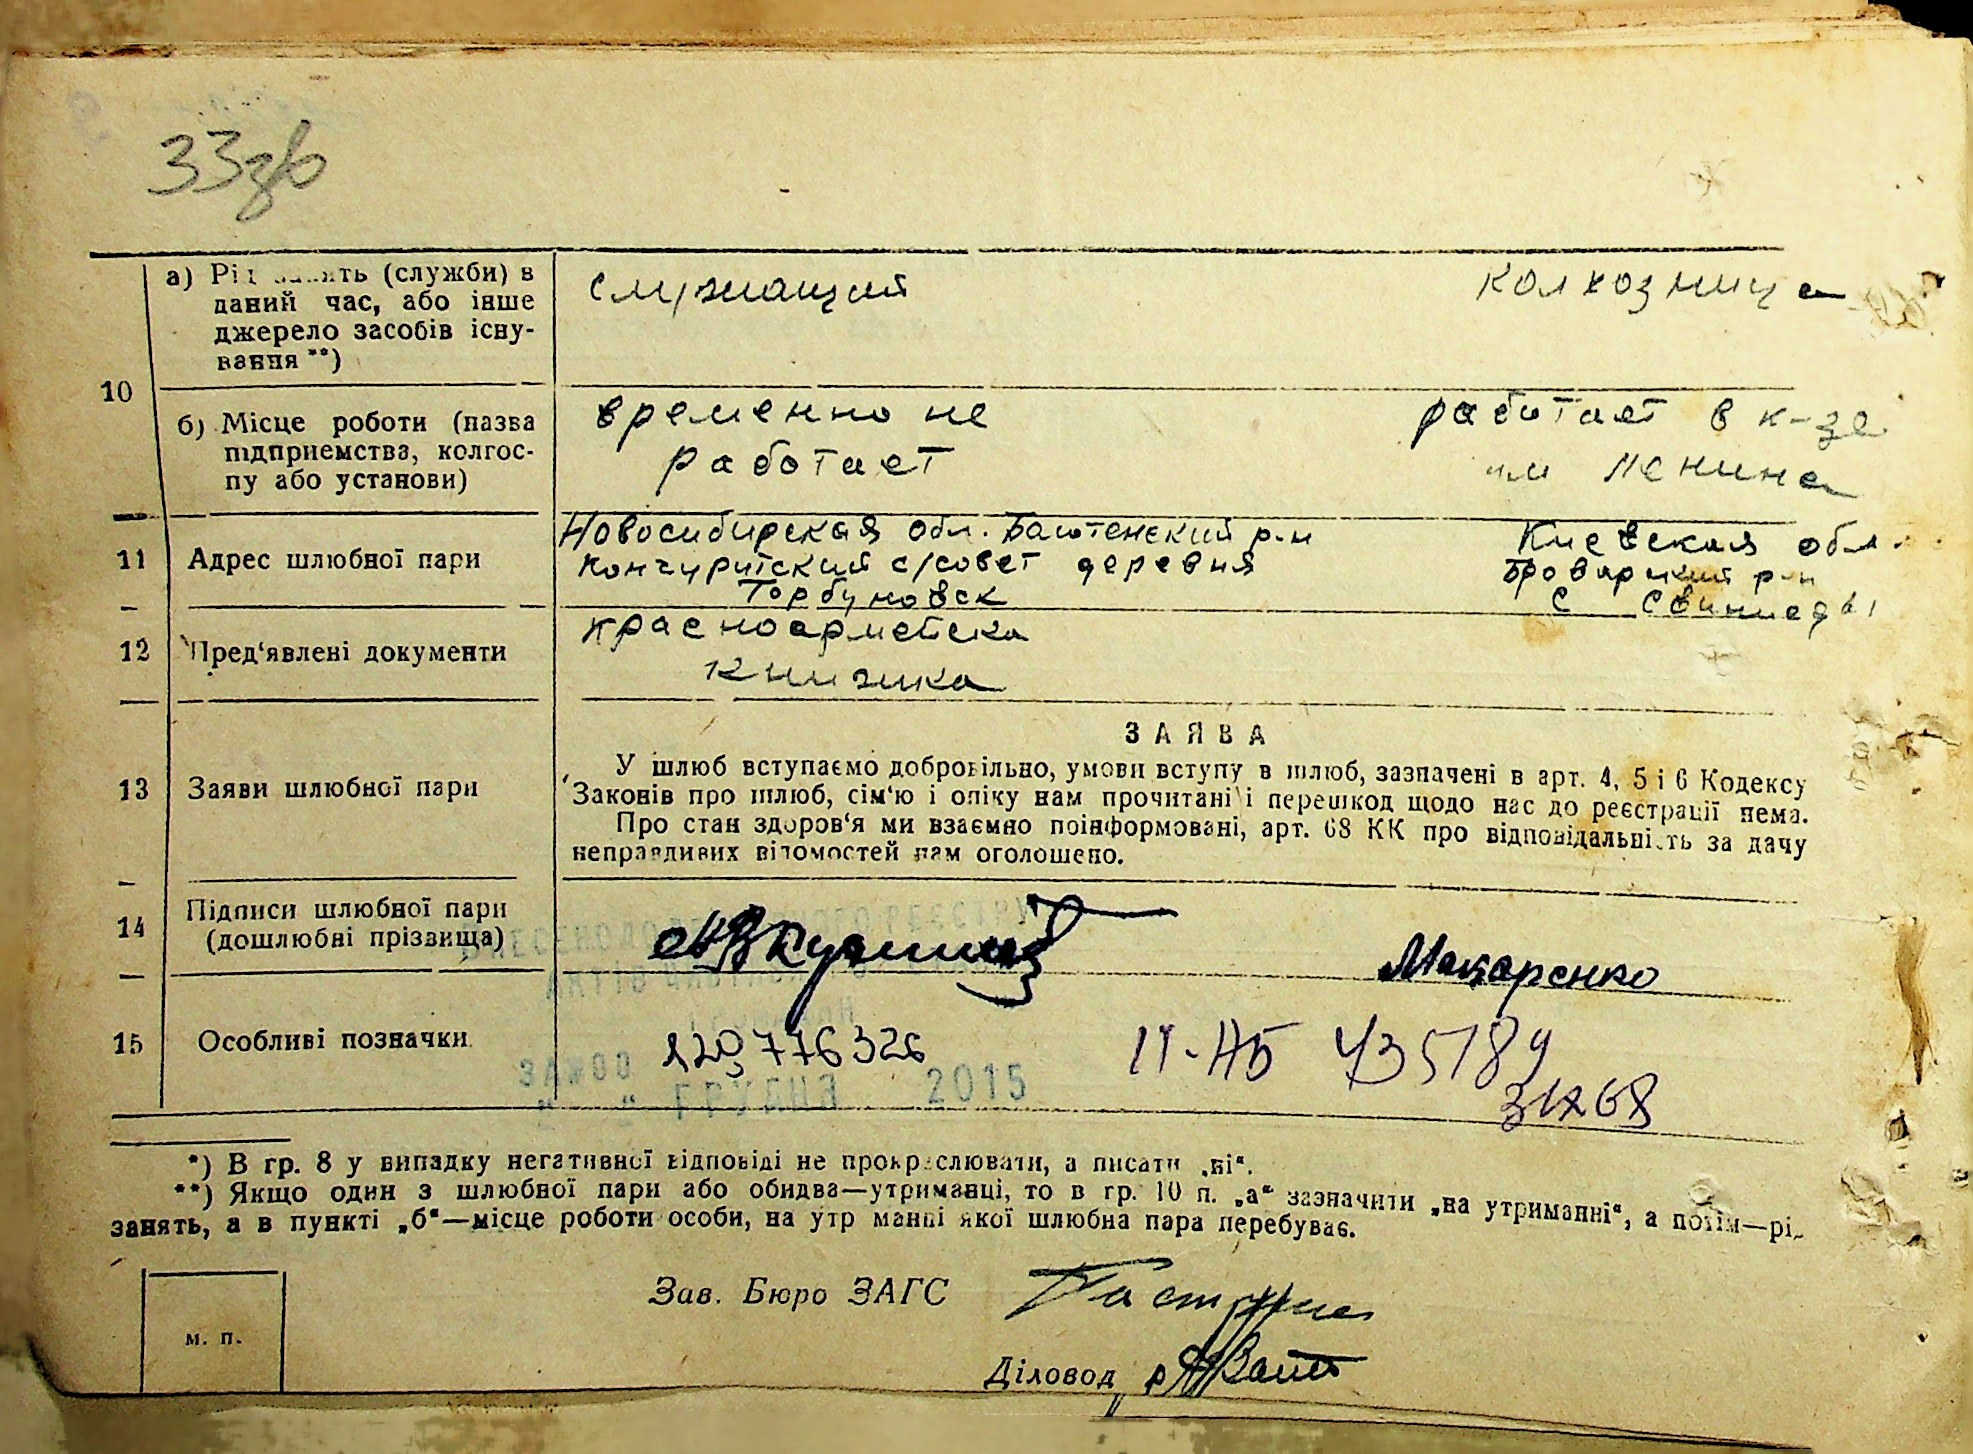 33зв
а) Рід занять (служби) в
даний час, або інше
джерело засобів існу-
вання **)
служащий
колхозница
10
б) Місце роботи (назва
підприємства, колгос-
пу або установи)
временно не
работает
работает в к-зе
им Ленина
11
Адрес шлюбної пари
Новосибирская обл. р-н
с/совет деревня
Киевская обл.
Броварский р-н
с
12
Пред'явлені документи
красноармейска
книжка
13
Заяви шлюбної пари
ЗАЯВА
У шлюб вступаємо добровільно, умови вступу в шлюб, зазначені в арт. 4, 5 і 6 Кодексу
Законів про шлюб, сім'ю і опіку нам прочитані і перешкод щодо нас до реєстрації нема.
Про стан здоров'я ми взаємно поінформовані, арт. 68 КК про відповідальність за дачу
неправдивих відомостей нам оголошено.
14
Підписи шлюбної пари
(дошлюбні прізвища)
Макаренко
15
Особливі позначки
776326
II-НБ 435189
68
ГРУДНЯ 2015
*) В гр. 8 у випадку негативної відповіді не прокреслювати, а писати „ні“.
**) Якщо один з шлюбної пари або обидва—утриманці, то в гр. 10 п. „а“ зазначити „на утриманні“, а потім—рід
занять, а в пункті „б“—місце роботи особи, на утриманні якої шлюбна пара перебуває.
м. п.
Зав. Бюро ЗАГС
Діловод